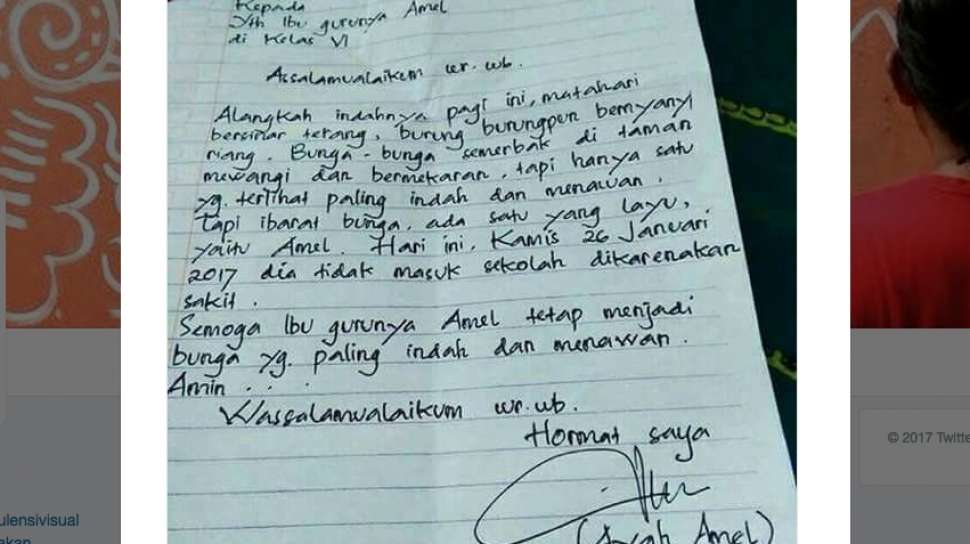 Kepada
Yth Ibu gurunya Amel
di Kelas VI
Assalamualaikum wr. wb.
Alangkah indahnya pagi ini, matahari
bersinar terang, burung burungpun bernyanyi
riang. Bunga-bunga semerbak di taman
mewangi dan bermekaran, tapi hanya satu
yg. terlihat paling indah dan menawan.
Tapi ibarat bunga, ada satu yang layu,
yaitu Amel. Hari ini, Kamis 26 Januari
2017 dia tidak masuk sekolah dikarenakan
sakit.
Semoga Ibu gurunya Amel tetap menjadi
bunga yg. paling indah dan menawan.
Amin . . .
Wassalamualaikum wr. wb.
Hormat saya
(Ayah Amel)
© 2017 Twitte
ulensivisual
akan